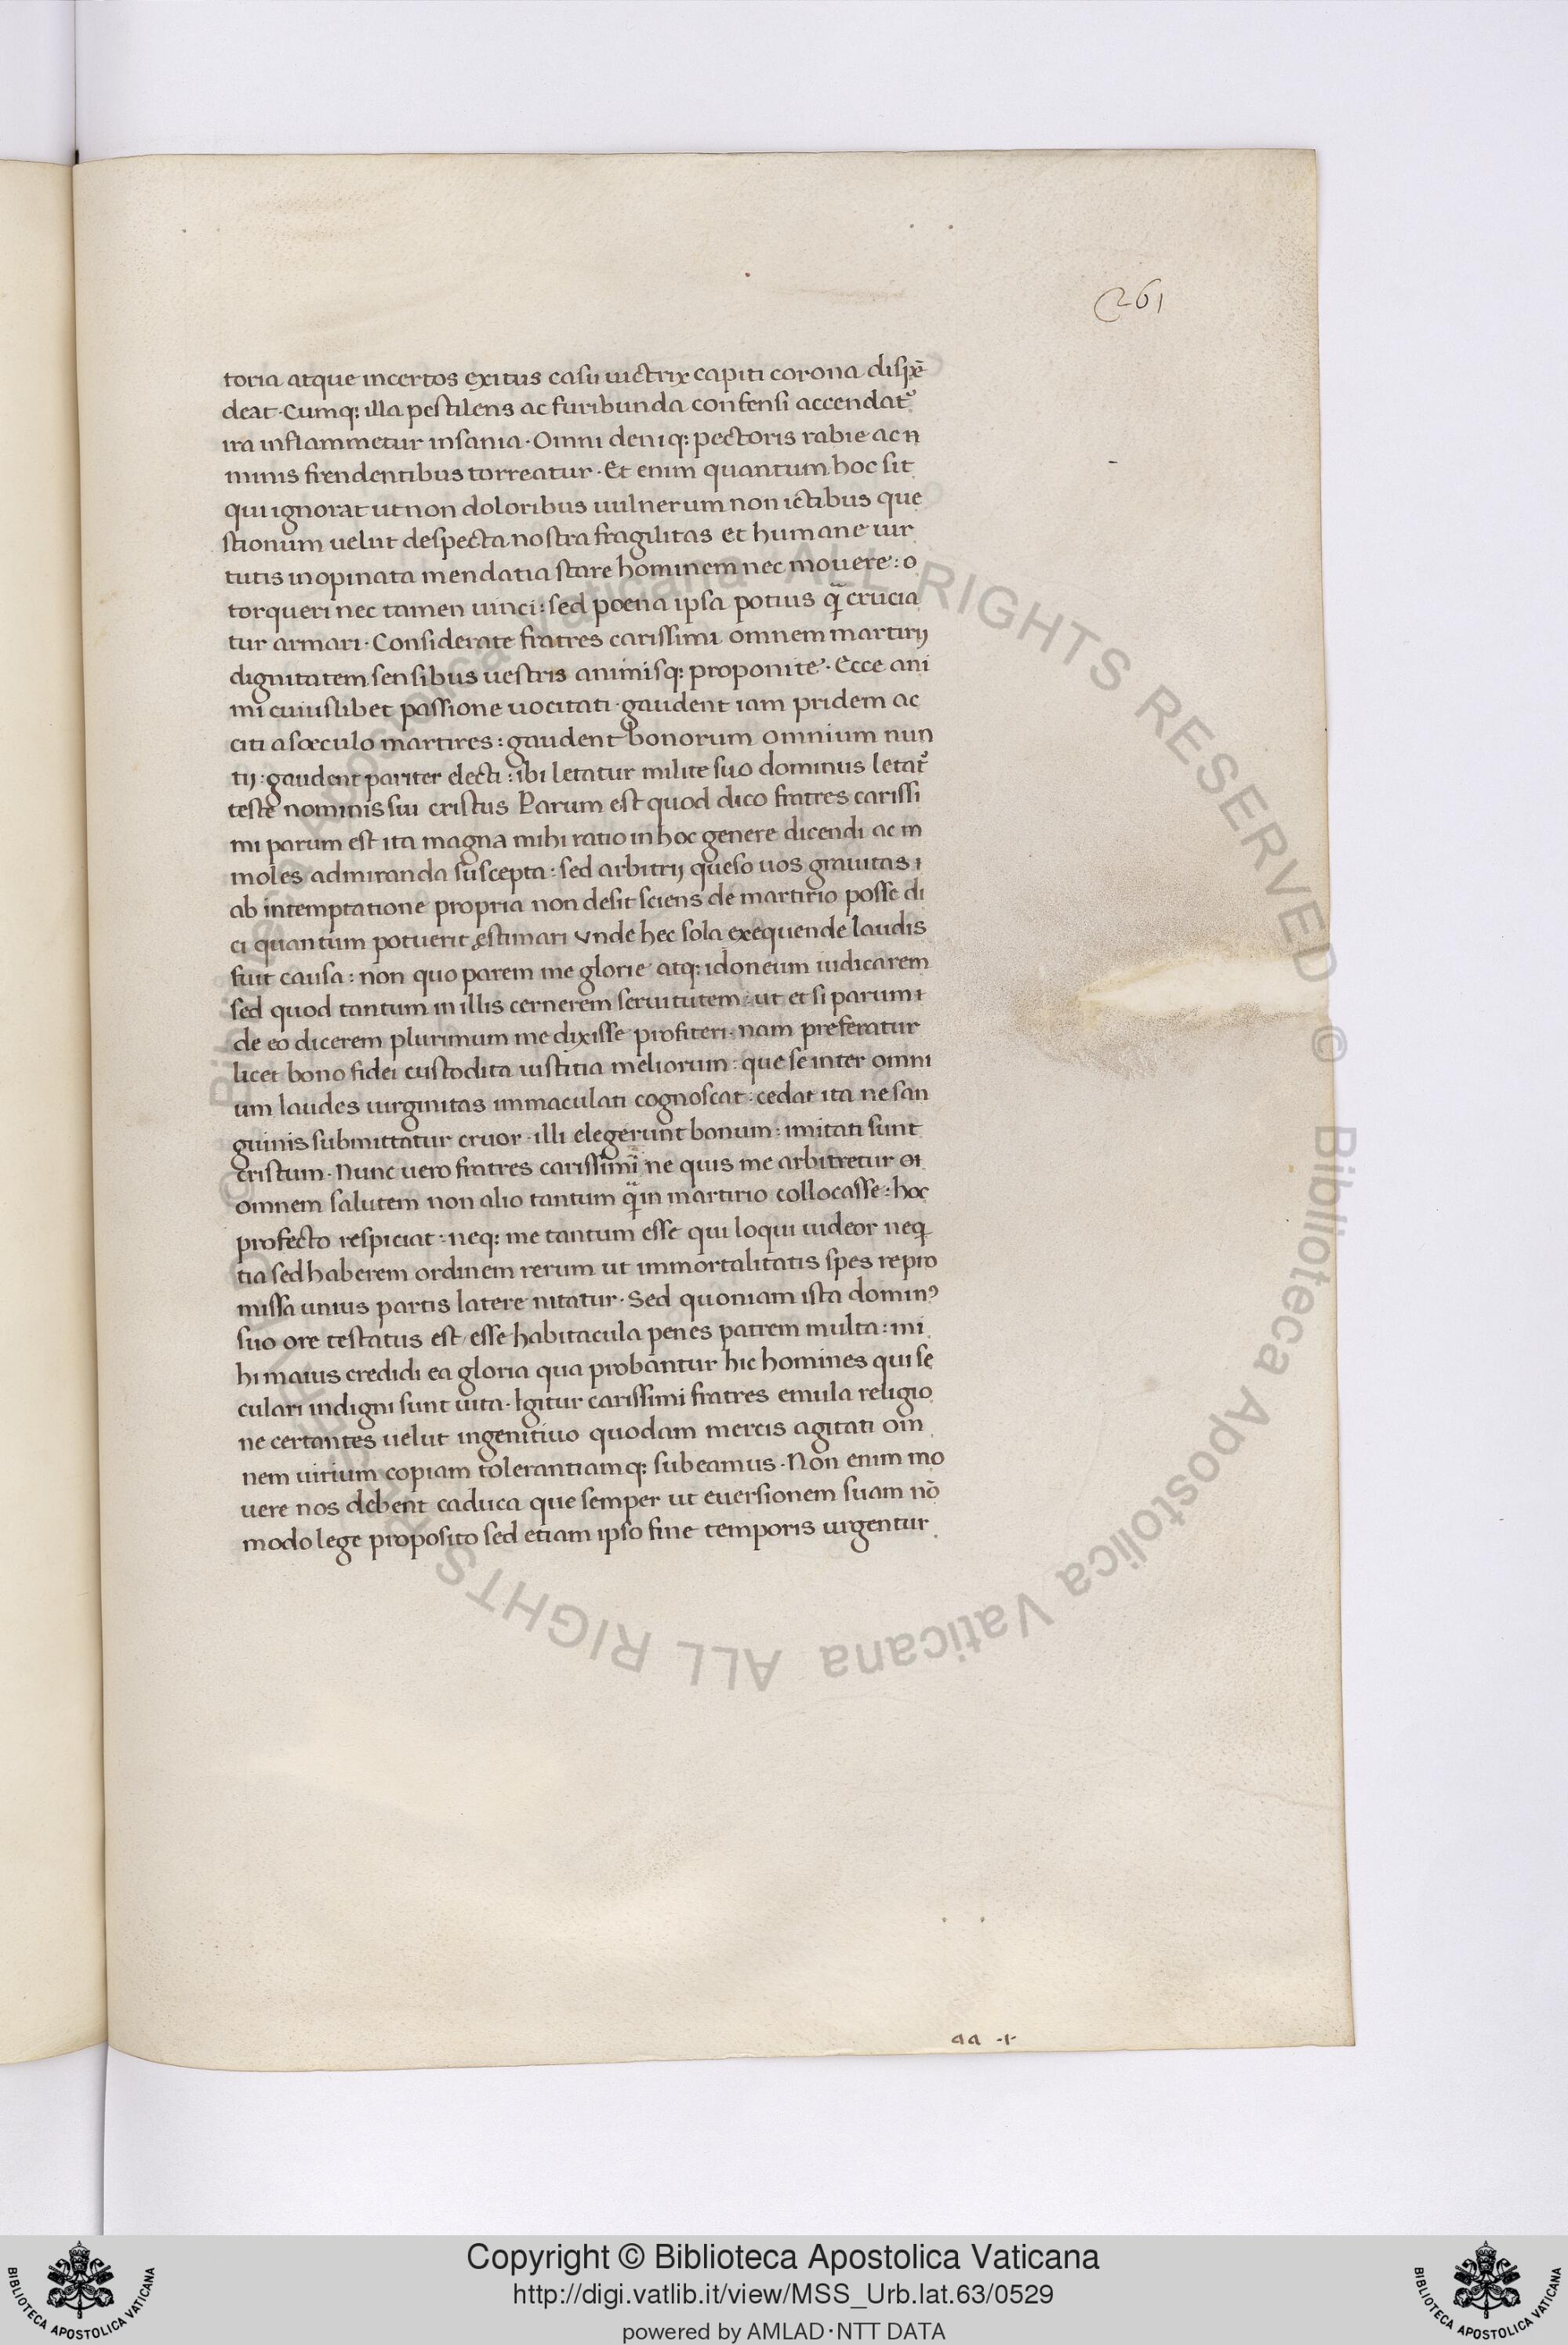 261
toria atque incertos exitus casu uictrix capiti corona dispē
deat · Cumq: illa pestilens ac furibunda confensi accendat᷒
ira inflammetur insania · Omni deniq: pectoris rabie ac n
minis frendentibus torreatur · Et enim quantum hoc sit
qui ignorat ut non doloribus uulnerum non ictibus que
stionum uelut despecta nostra fragilitas et humane uir
tutis inopinata mendatia stare hominem nec mouere : o
torqueri nec tamen uinci : sed poena ipsa potius q̃ crucia
tur armari · Considerate fratres carissimi omnem martirij
dignitatem sensibus uestris animisq: proponite · Ecce ani
mi cuiuslibet passione uocitati · gaudent iam pridem ac
citi a sæculo martires : gaudent bonorum omnium nun
tij : gaudent pariter electi : ibi letatur milite suo dominus letat᷒
teste nominis sui cristus Parum est quod dico fratres carissi
mi parum est ita magna mihi ratio in hoc genere dicendi ac in
moles admiranda suscepta : sed arbitrij queso uos grauitas i
ab intemptatione propria non desit sciens de martirio posse di
ci quantum potuerit ęstimari vnde hec sola exequende laudis
fuit causa : non quo parem me glorie atq: idoneum iudicarem
sed quod tantum in illis cernerem seruitutem : ut et si parum i
de eo dicerem plurimum me dixisse profiteri · nam preferatur
licet bono fidei custodita iustitia meliorum : que se inter omni
um laudes uirginitas immaculati cognoscat : cedat ita ne san
guinis submittatur cruor · illi elegerunt bonum : imitati sunt
cristum · Nunc uero fratres carissimi ne quis me arbitretur oı
omnem salutem non alio tantum q̃ in martirio collocasse : hoc
profecto respiciat : neq: me tantum esse qui loqui uideor neq
tia sed haberem ordinem rerum ut immortalitatis spes repro
missa unius partis latere nitatur · Sed quoniam ista dominꝰ
suo ore testatus est / esse habitacula penes patrem multa : mi
hi maius credidi ea gloria qua probantur hic homines qui sę
culari indigni sunt uita · Igitur carissimi fratres emula religio
ne certantes uelut ingenitiuo quodam mercis agitati om
nem uirium copiam tolerantiamq: subeamus · Non enim mo
uere nos debent caduca que semper ut euersionem suam nō
modo lege proposito sed etiam ipso fine temporis urgentur
aa ·i·
© Biblioteca Apostolica Vaticana ALL RIGHTS RESERVED © Biblioteca Apostolica Vaticana ALL RIGHTS RESERVED
Copyright © Biblioteca Apostolica Vaticana
http://digi.vatlib.it/view/MSS_Urb.lat.63/0529
powered by AMLAD·NTT DATA
BIBLIOTECA APOSTOLICA VATICANA
BIBLIOTECA APOSTOLICA VATICANA